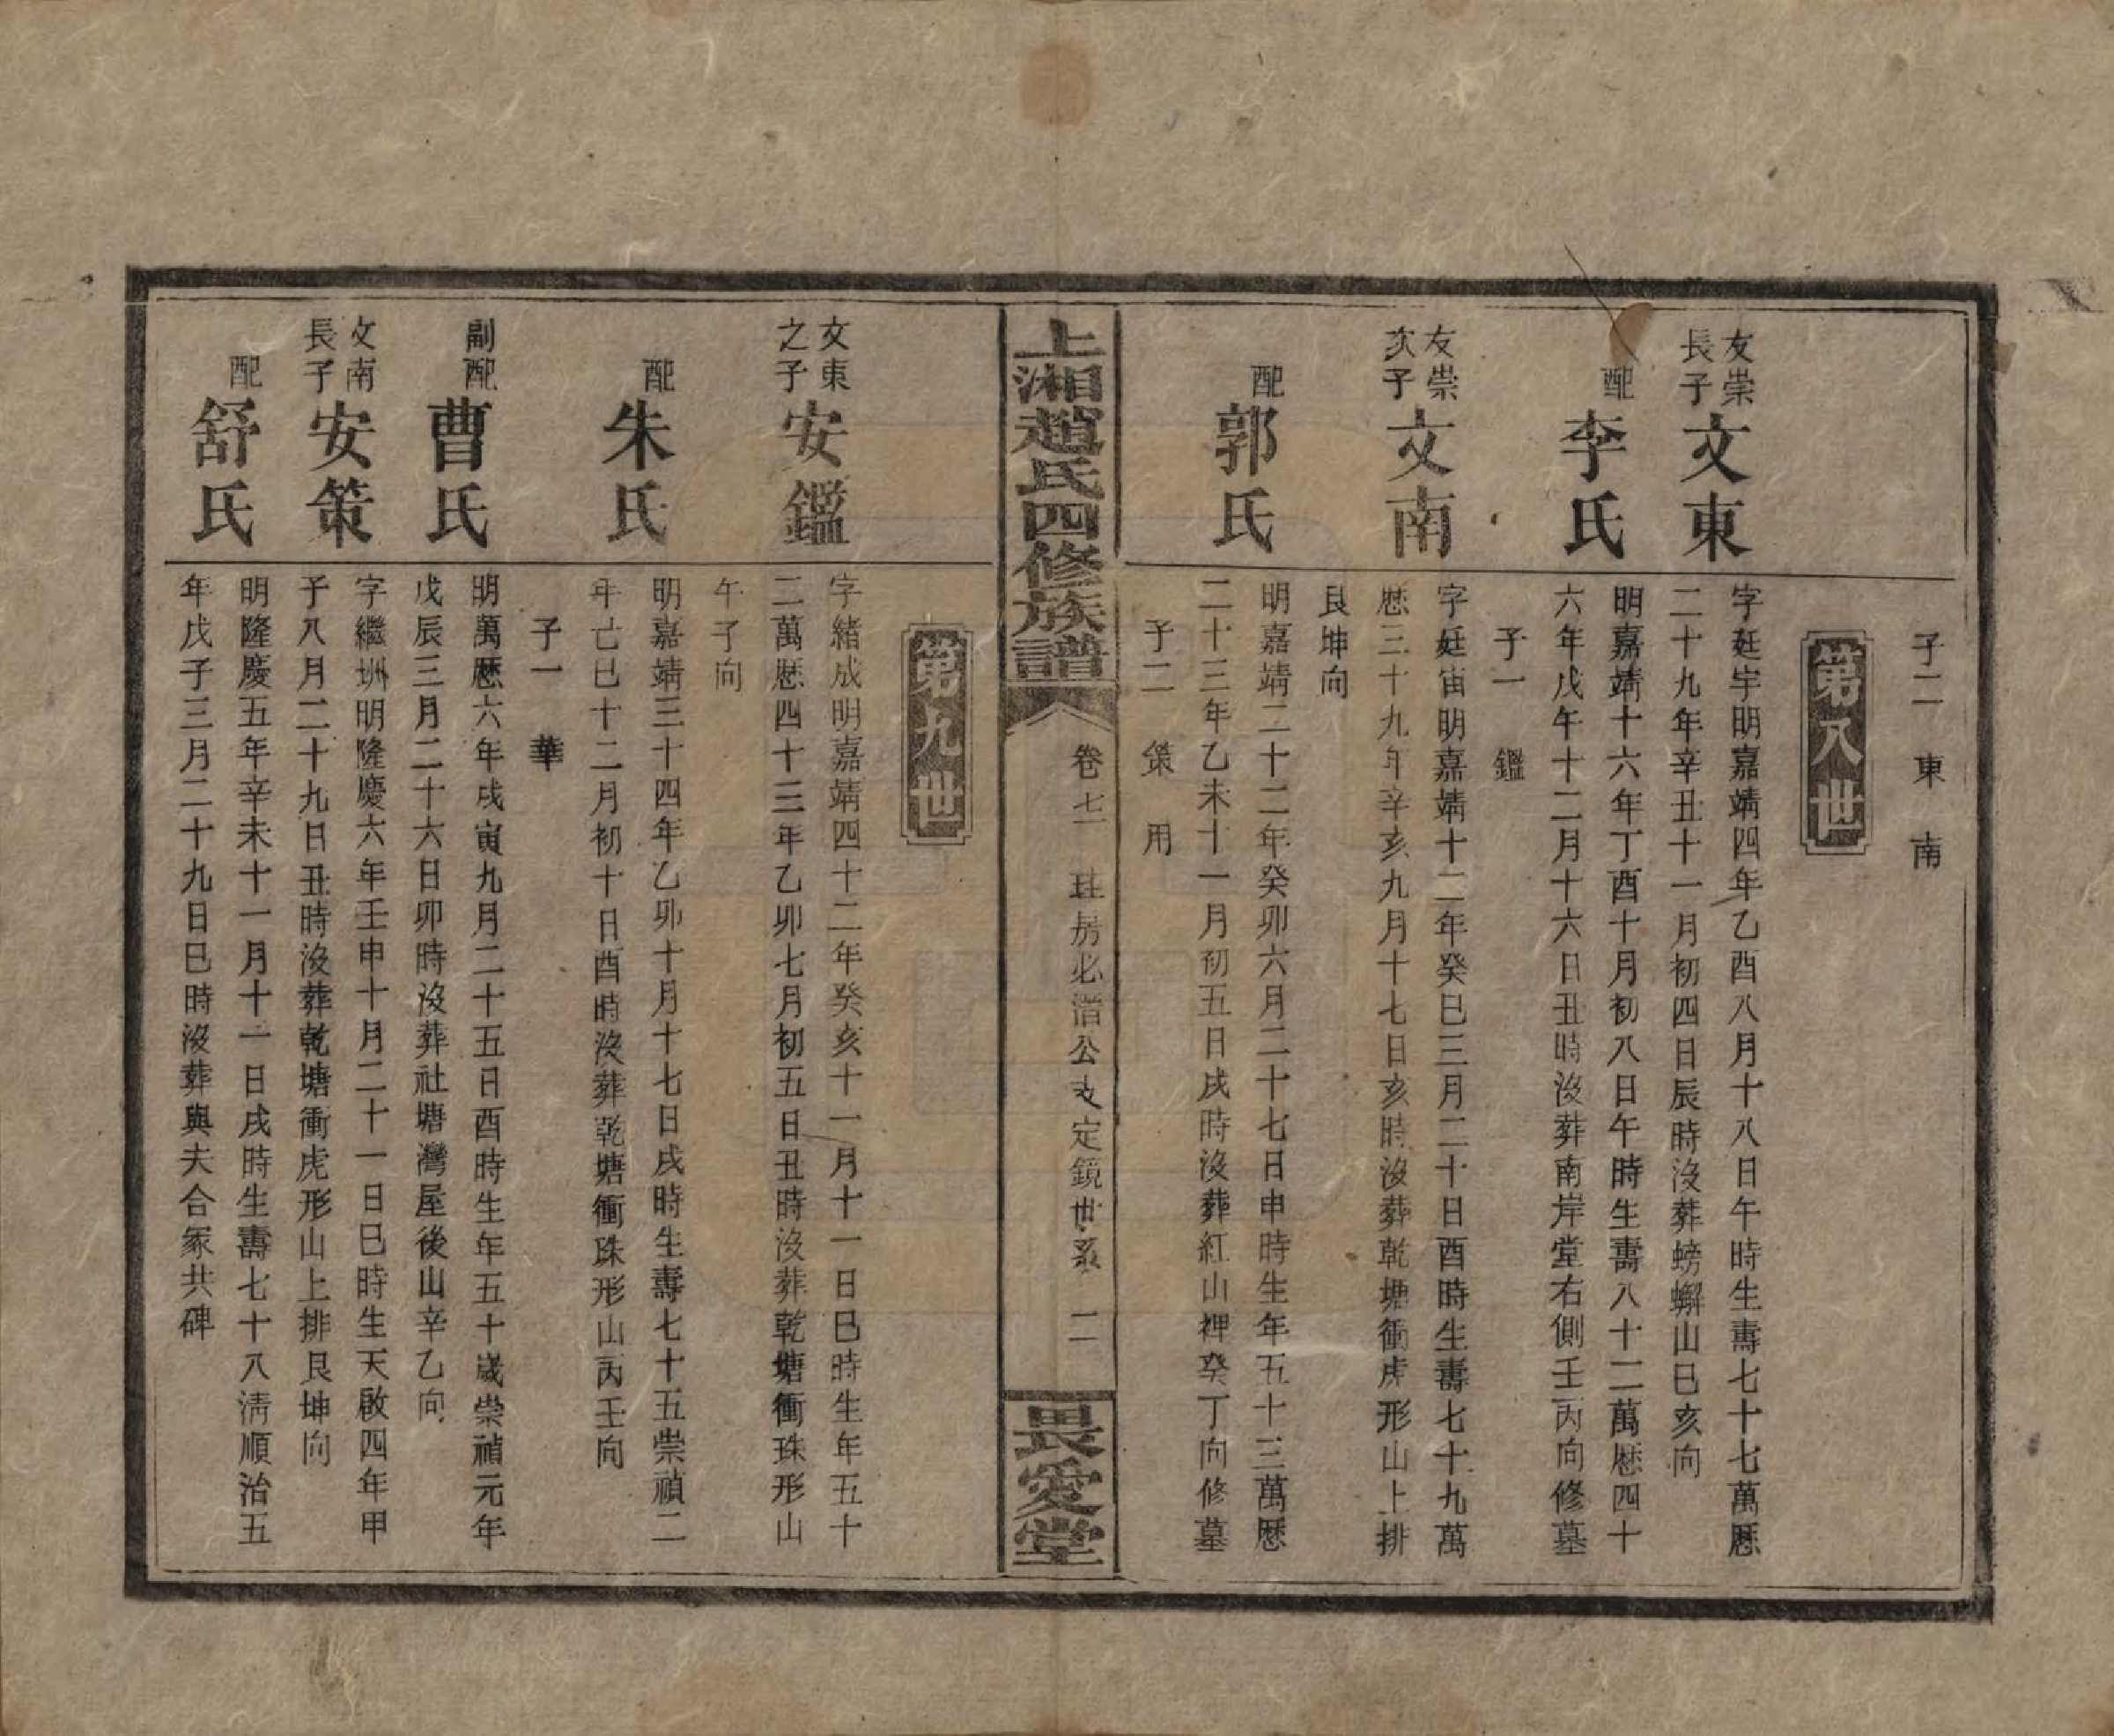 子二　東　南
第八世
友崇
長子
文東
字廷宇明嘉靖四年乙酉八月十八日午時生壽七十七萬厯
二十九年辛丑十一月初四日辰時沒葬螃蠏山巳亥向
配
李氏
明嘉靖十六年丁酉十月初八日午時生壽八十二萬厯四十
六年戊午十二月十六日丑時沒葬南岸堂右側壬丙向修墓
子一　鑑
友崇
次子
文南
字廷宙明嘉靖十二年癸巳三月二十日酉時生壽七十九萬
厯三十九年辛亥九月十七日亥時沒葬乾塘衝虎形山上排
艮坤向
配
郭氏
明嘉靖二十二年癸卯六月二十七日申時生年五十三萬厯
二十三年乙未十一月初五日戌時沒葬紅山裡癸丁向修墓
子二　策　用
上湘趙氏四修族譜
卷七　珪房必潽公支定鏡世系　二
畏愛堂
第九世
文東
之子
安鑑
字緒成明嘉靖四十二年癸亥十一月十一日巳時生年五十
二萬厯四十三年乙卯七月初五日丑時沒葬乾塘衝珠形山
午子向
配
朱氏
明嘉靖三十四年乙卯十月十七日戌時生壽七十五崇禎二
年己巳十二月初十日酉時沒葬乾塘衝珠形山丙壬向
子一　華
副配
曹氏
明萬厯六年戊寅九月二十五日酉時生年五十歲崇禎元年
戊辰三月二十六日卯時沒葬社塘灣屋後山辛乙向
文南
長子
安策
字繼圳明隆慶六年壬申十月二十一日巳時生天啟四年甲
子八月二十九日丑時沒葬乾塘衝虎形山上排艮坤向
配
舒氏
明隆慶五年辛未十一月十一日戌時生壽七十八淸順治五
年戊子三月二十九日巳時沒葬與夫合冢共碑